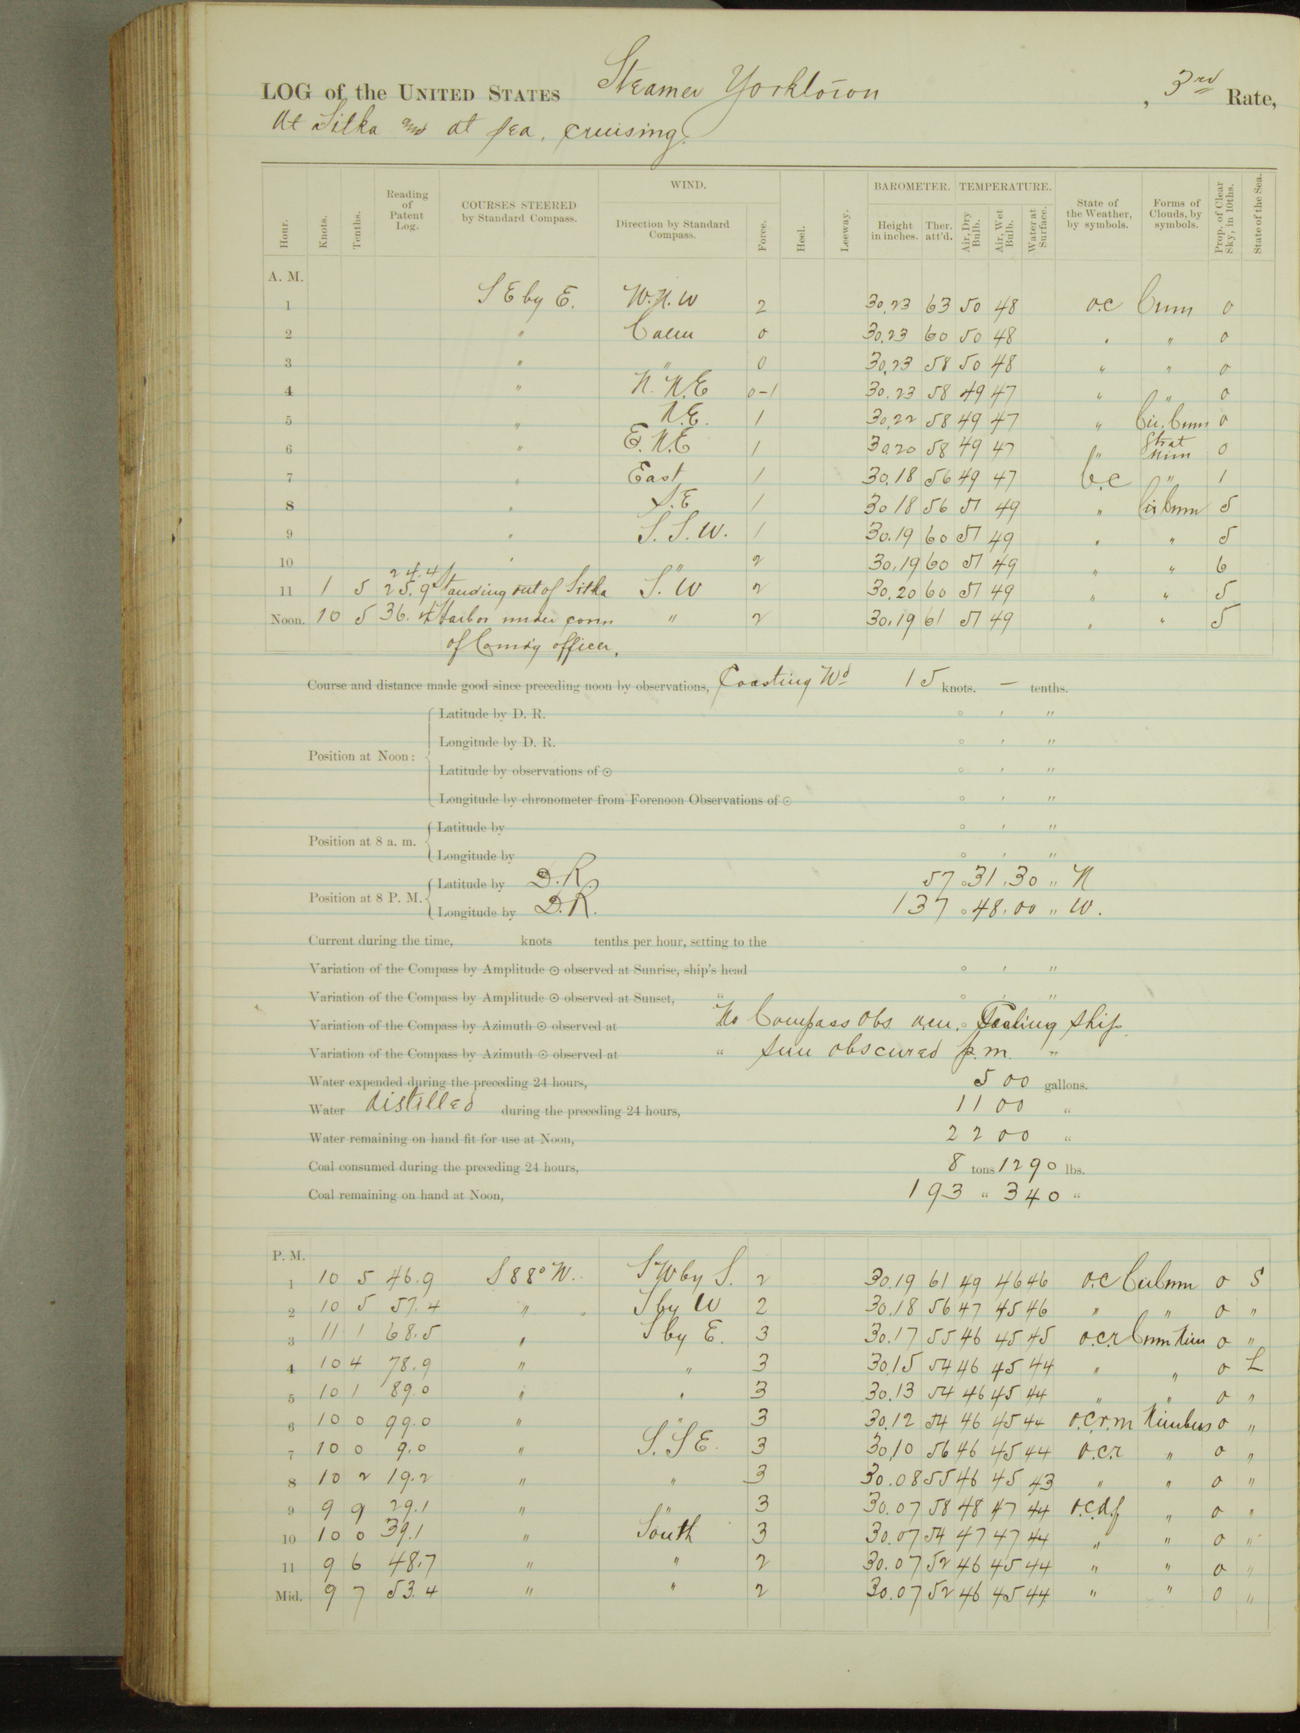 LOG of the UNITED STATES Steamer Yorktown , 3rd Rate,
At Sitka and at sea, cruising.
Hour. Knots. Tenths. Reading of Patent Log. COURSES STEERED by Standard Compass. WIND. Direction by Standard Compass. Force. Heel. Leeway. BAROMETER. Height in inches. Ther. att'd. TEMPERATURE. Air, Dry Bulb. Air, Wet Bulb. Water at Surface. State of the Weather, by symbols. Forms of Clouds, by symbols. Prop. of Clear Sky, in 10ths. State of the Sea.
A. M.
1 S E by E. W.N.W 2 30.23 63 50 48 o.c Cum 0
2 " Calm 0 30.23 60 50 48 " " 0
3 " " 0 30.23 58 50 48 " " 0
4 " N.N.E 0-1 30.23 58 49 47 " " 0
5 " N.E. 1 30.22 58 49 47 " Cir. Cum 0
6 " E.N.E 1 30.20 58 49 47 " Strat Nim 0
7 " East 1 30.18 56 49 47 b.c " 1
8 " S.E 1 30 18 56 51 49 " Cir Cum 5
9 " S.S.W. 1 30.19 60 51 49 " " 5
10 " " 2 30.19 60 51 49 " " 6
24.4
11 1 5 25.9 Standing out of Sitka S.W 2 30.20 60 51 49 " " 5
Noon. 10 5 36.4 Harbor under conn " 2 30.19 61 51 49 " " 5
of Comd'g officer.
Course and distance made good since preceding noon by observations, Coasting Wd 15 knots. — tenths.
Position at Noon: Latitude by D. R. ° ′ ″
Longitude by D. R. ° ′ ″
Latitude by observations of ☉ ° ′ ″
Longitude by chronometer from Forenoon Observations of ☉ ° ′ ″
Position at 8 a. m. Latitude by ° ′ ″
Longitude by ° ′ ″
Position at 8 P. M. Latitude by D.R. 57 ° 31 ′ 30 ″ N
Longitude by D.R. 137 ° 48 ′ 00 ″ W.
Current during the time, knots tenths per hour, setting to the
Variation of the Compass by Amplitude ☉ observed at Sunrise, ship's head ° ′ ″
Variation of the Compass by Amplitude ☉ observed at Sunset, " ° ′ ″
Variation of the Compass by Azimuth ☉ observed at No Compass obs a.m. Coaling ship.
Variation of the Compass by Azimuth ☉ observed at " Sun obscured p.m. "
Water expended during the preceding 24 hours, 500 gallons.
Water distilled during the preceding 24 hours, 1100 "
Water remaining on hand fit for use at Noon, 2200 "
Coal consumed during the preceding 24 hours, 8 tons 1290 lbs.
Coal remaining on hand at Noon, 193 " 340 "
P. M.
1 10 5 46.9 S 88° W. SW by S. 2 30.19 61 49 46 46 o.c Cu Cum 0 S
2 10 5 57.4 " S by W 2 30.18 56 47 45 46 " " 0 "
3 11 1 68.5 " S by E. 3 30.17 55 46 45 45 o.c.r Cum Nim 0 "
4 10 4 78.9 " " 3 30.15 54 46 45 44 " " 0 L
5 10 1 89.0 " " 3 30.13 54 46 45 44 " " 0 "
6 10 0 99.0 " " 3 30.12 54 46 45 44 o.c.r.m Nimbus 0 "
7 10 0 9.0 " S.S E. 3 30.10 56 46 45 44 o.c.r " 0 "
8 10 2 19.2 " " 3 30.08 55 46 45 43 " " 0 "
9 9 9 29.1 " " 3 30.07 58 48 47 44 o.c.d.f " 0 "
10 10 0 39.1 " South 3 30.07 54 47 47 44 " " 0 "
11 9 6 48.7 " " 2 30.07 52 46 45 44 " " 0 "
Mid. 9 7 53.4 " " 2 30.07 52 46 45 44 " " 0 "